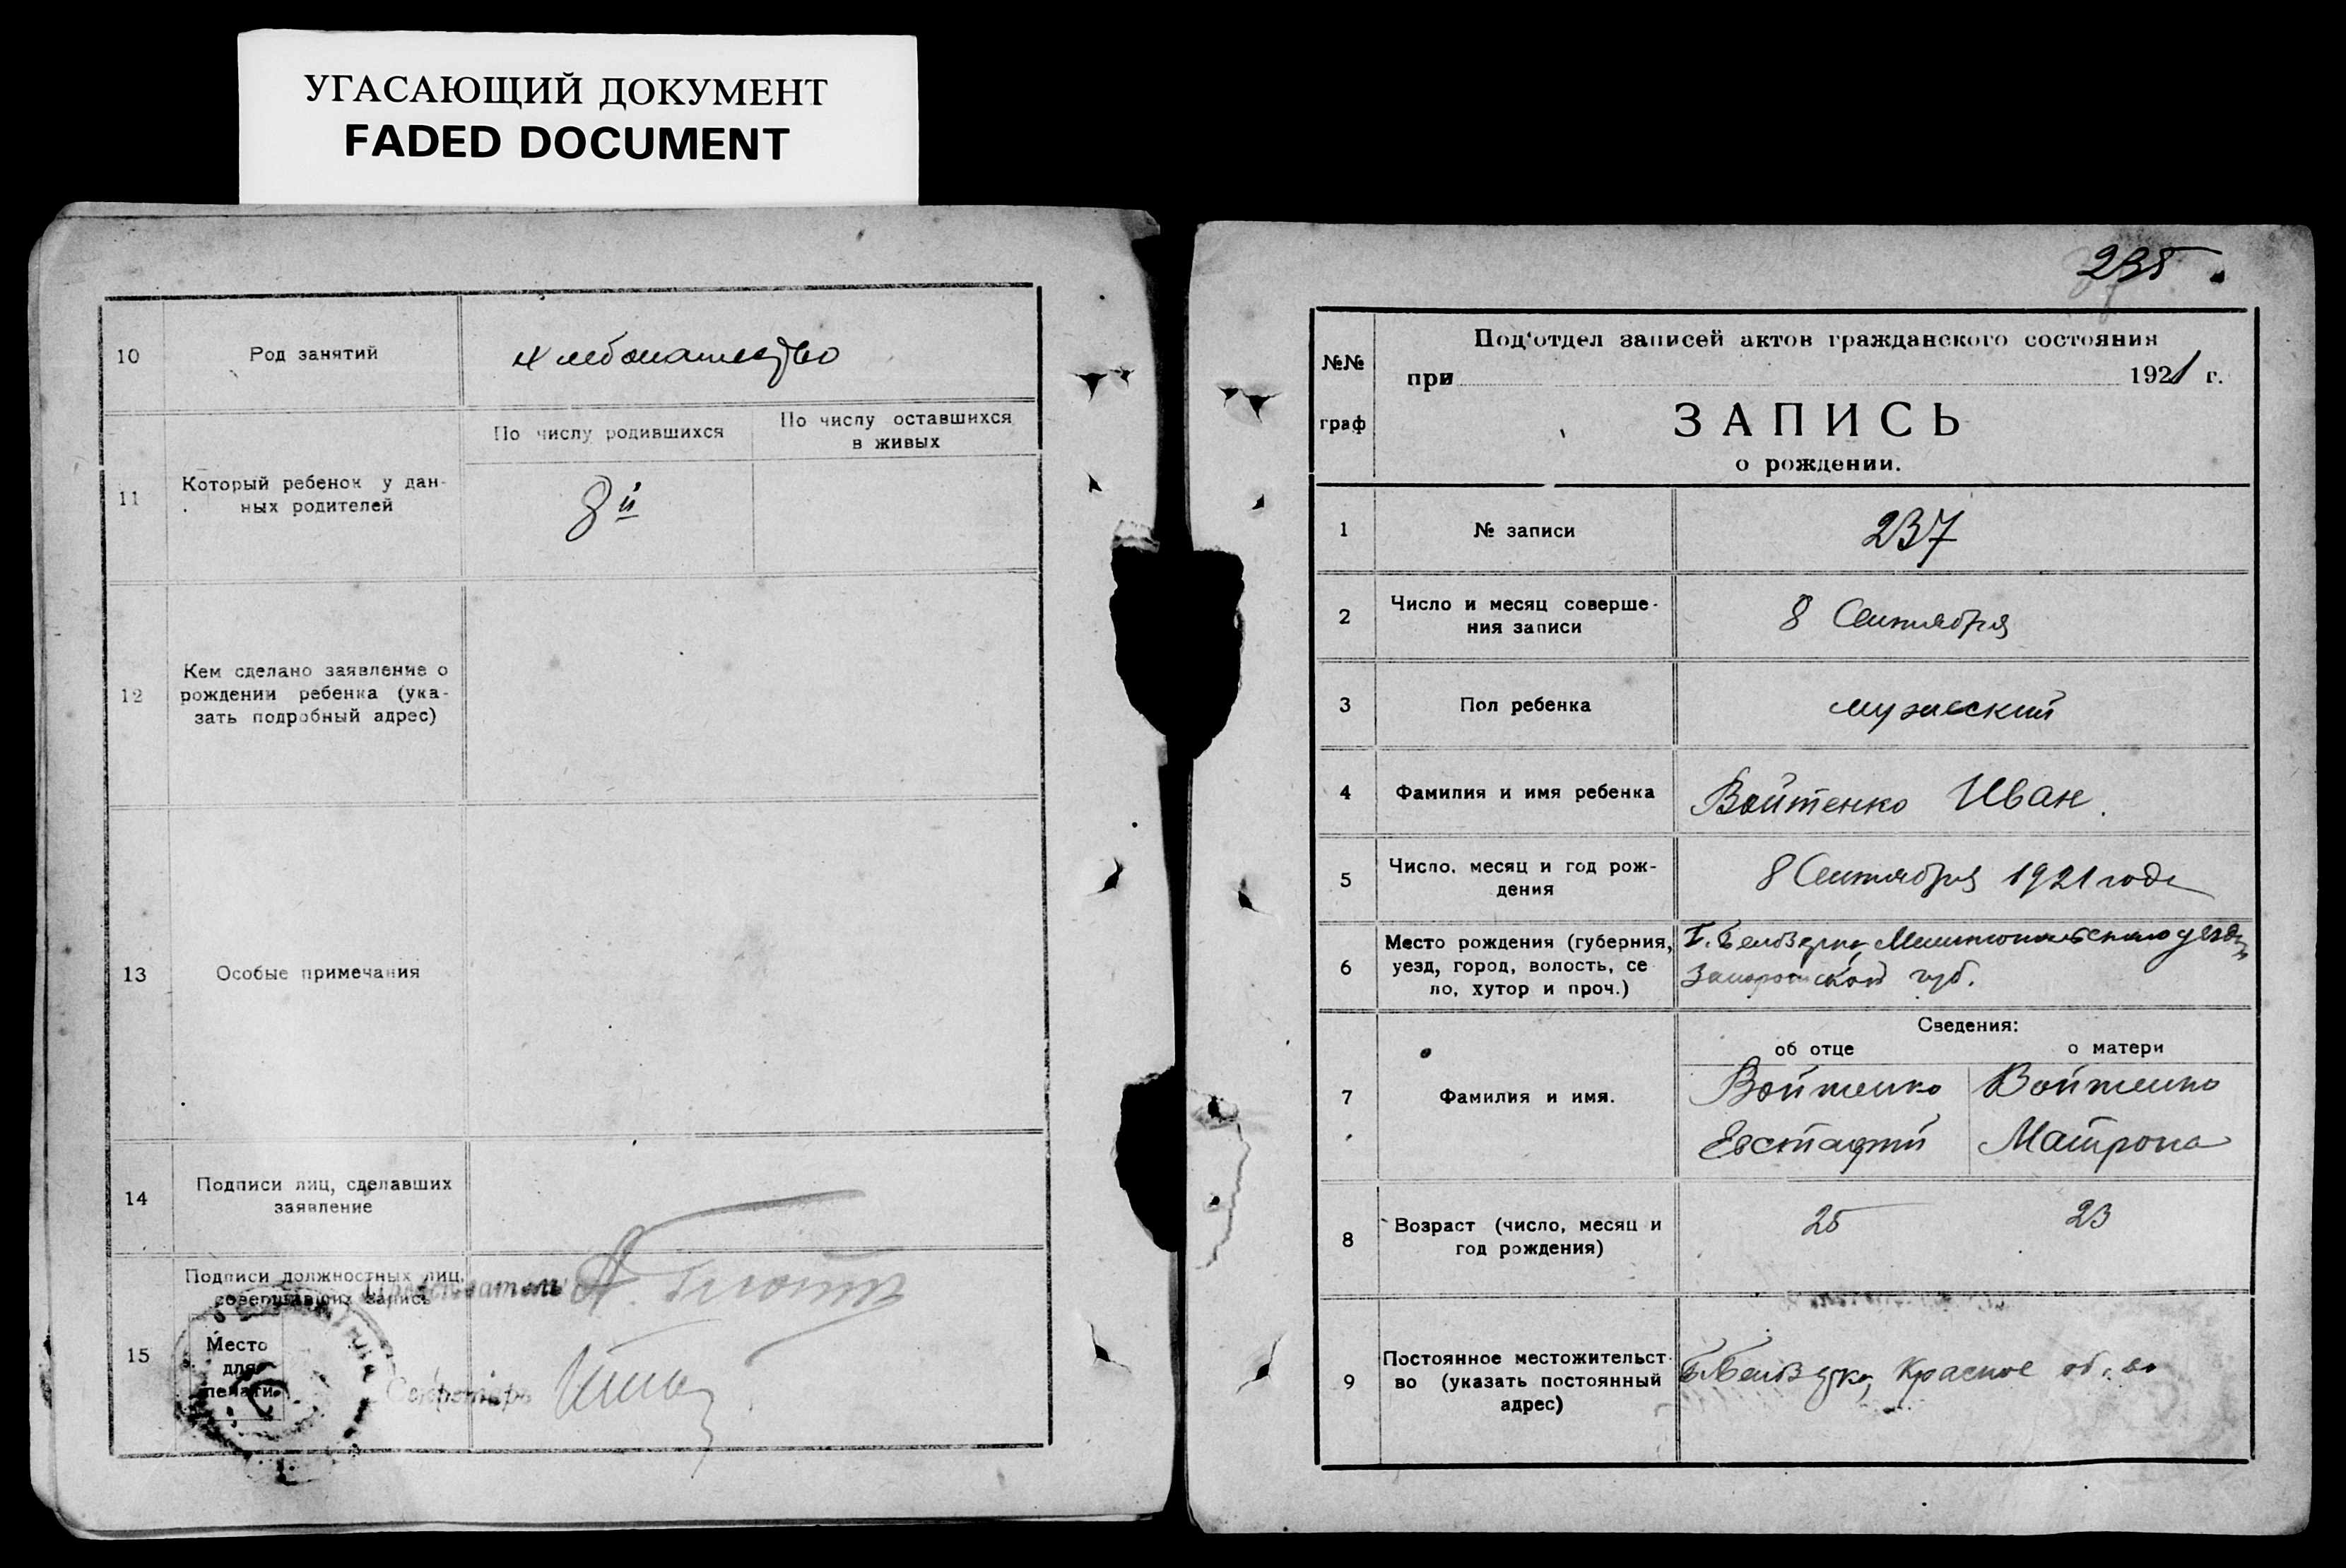 УГАСАЮЩИЙ ДОКУМЕНТ
FADED DOCUMENT
10
Род занятий
хлебопашество
11
Который ребенок у дан-
ных родителей
По числу родившихся
По числу оставшихся
в живых
3й
12
Кем сделано заявление о
рождении ребенка (ука-
зать подробный адрес)
13
Особые примечания
14
Подписи лиц, сделавших
заявление
15
Подписи должностных лиц,
совершавших запись
Место
для
печати
Председатель
Секретарь
235
№№
граф
Под'отдел записей актов гражданского состояния
при 1921 г.
ЗАПИСЬ
о рождении.
1
№ записи
237
2
Число и месяц соверше-
ния записи
8 Сентября
3
Пол ребенка
мужеский
4
Фамилия и имя ребенка
Войтенко Иван.
5
Число, месяц и год рож-
дения
8 Сентября 1921 года
6
Место рождения (губерния,
уезд, город, волость, се
ло, хутор и проч.)
Мелитопольского уезда
Запорожской губ.
Сведения:
об отце
о матери
7
Фамилия и имя.
Войтенко
Евстафий
Войтенко
Матрона
8
Возраст (число, месяц и
год рождения)
25
23
9
Постоянное местожительст-
во (указать постоянный
адрес)
Красное об-во